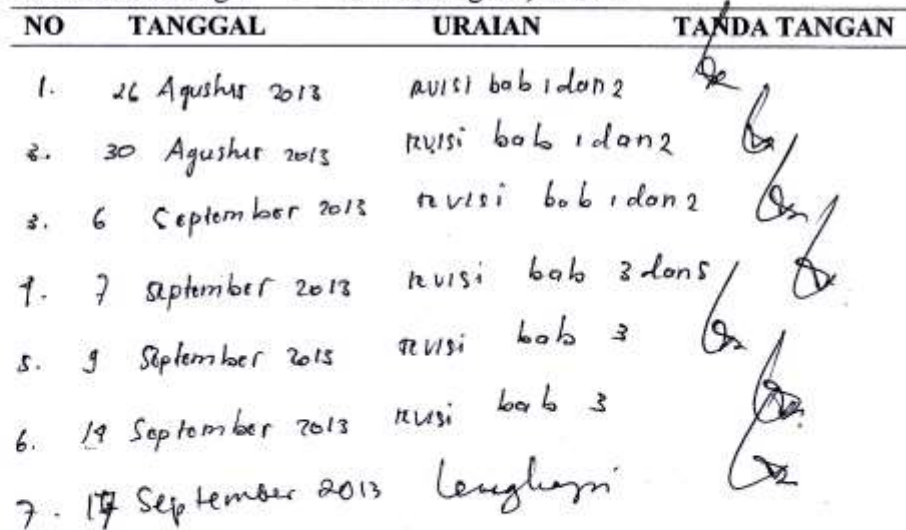 NO TANGGAL URAIAN TANDA TANGAN
1. 26 Agustus 2013 revisi bab 1 dan 2
2. 30 Agustus 2013 revisi bab 1 dan 2
3. 6 September 2013 revisi bab 1 dan 2
4. 7 September 2013 revisi bab 3 dan 5
5. 9 September 2013 revisi bab 3
6. 14 September 2013 revisi bab 3
7. 17 September 2013 lengkapi